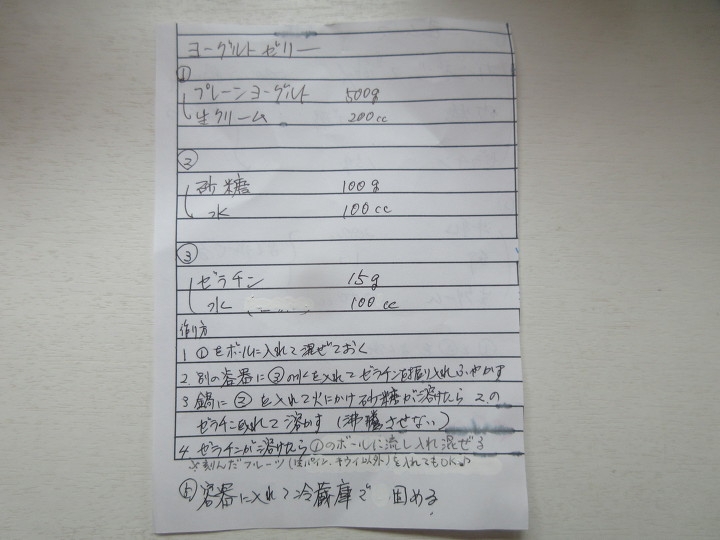 ヨーグルトゼリー
①
プレーンヨーグルト 500g
生クリーム 200cc
②
砂糖 100g
水 100cc
③
ゼラチン 15g
水 100cc
作り方
1 ①をボールに入れて混ぜておく
2 別の容器に③の水を入れてゼラチンを振り入れふやかす
3 鍋に②を入れて火にかけ砂糖が溶けたら2の
ゼラチンを入れて溶かす(沸騰させない)
4 ゼラチンが溶けたら①のボールに流し入れ混ぜる
※刻んだフルーツ(パイン、キウイ以外)を入れてもOK♪
⑤容器に入れて冷蔵庫で 固める